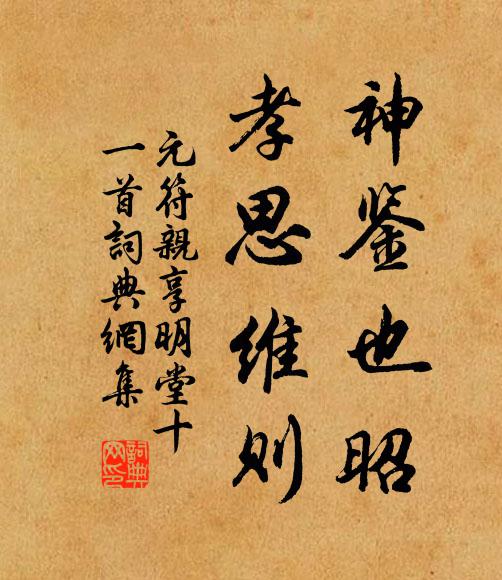 神鉴也昭
孝思维则
元符親享明堂十
一首詞典網集
詞典
网印